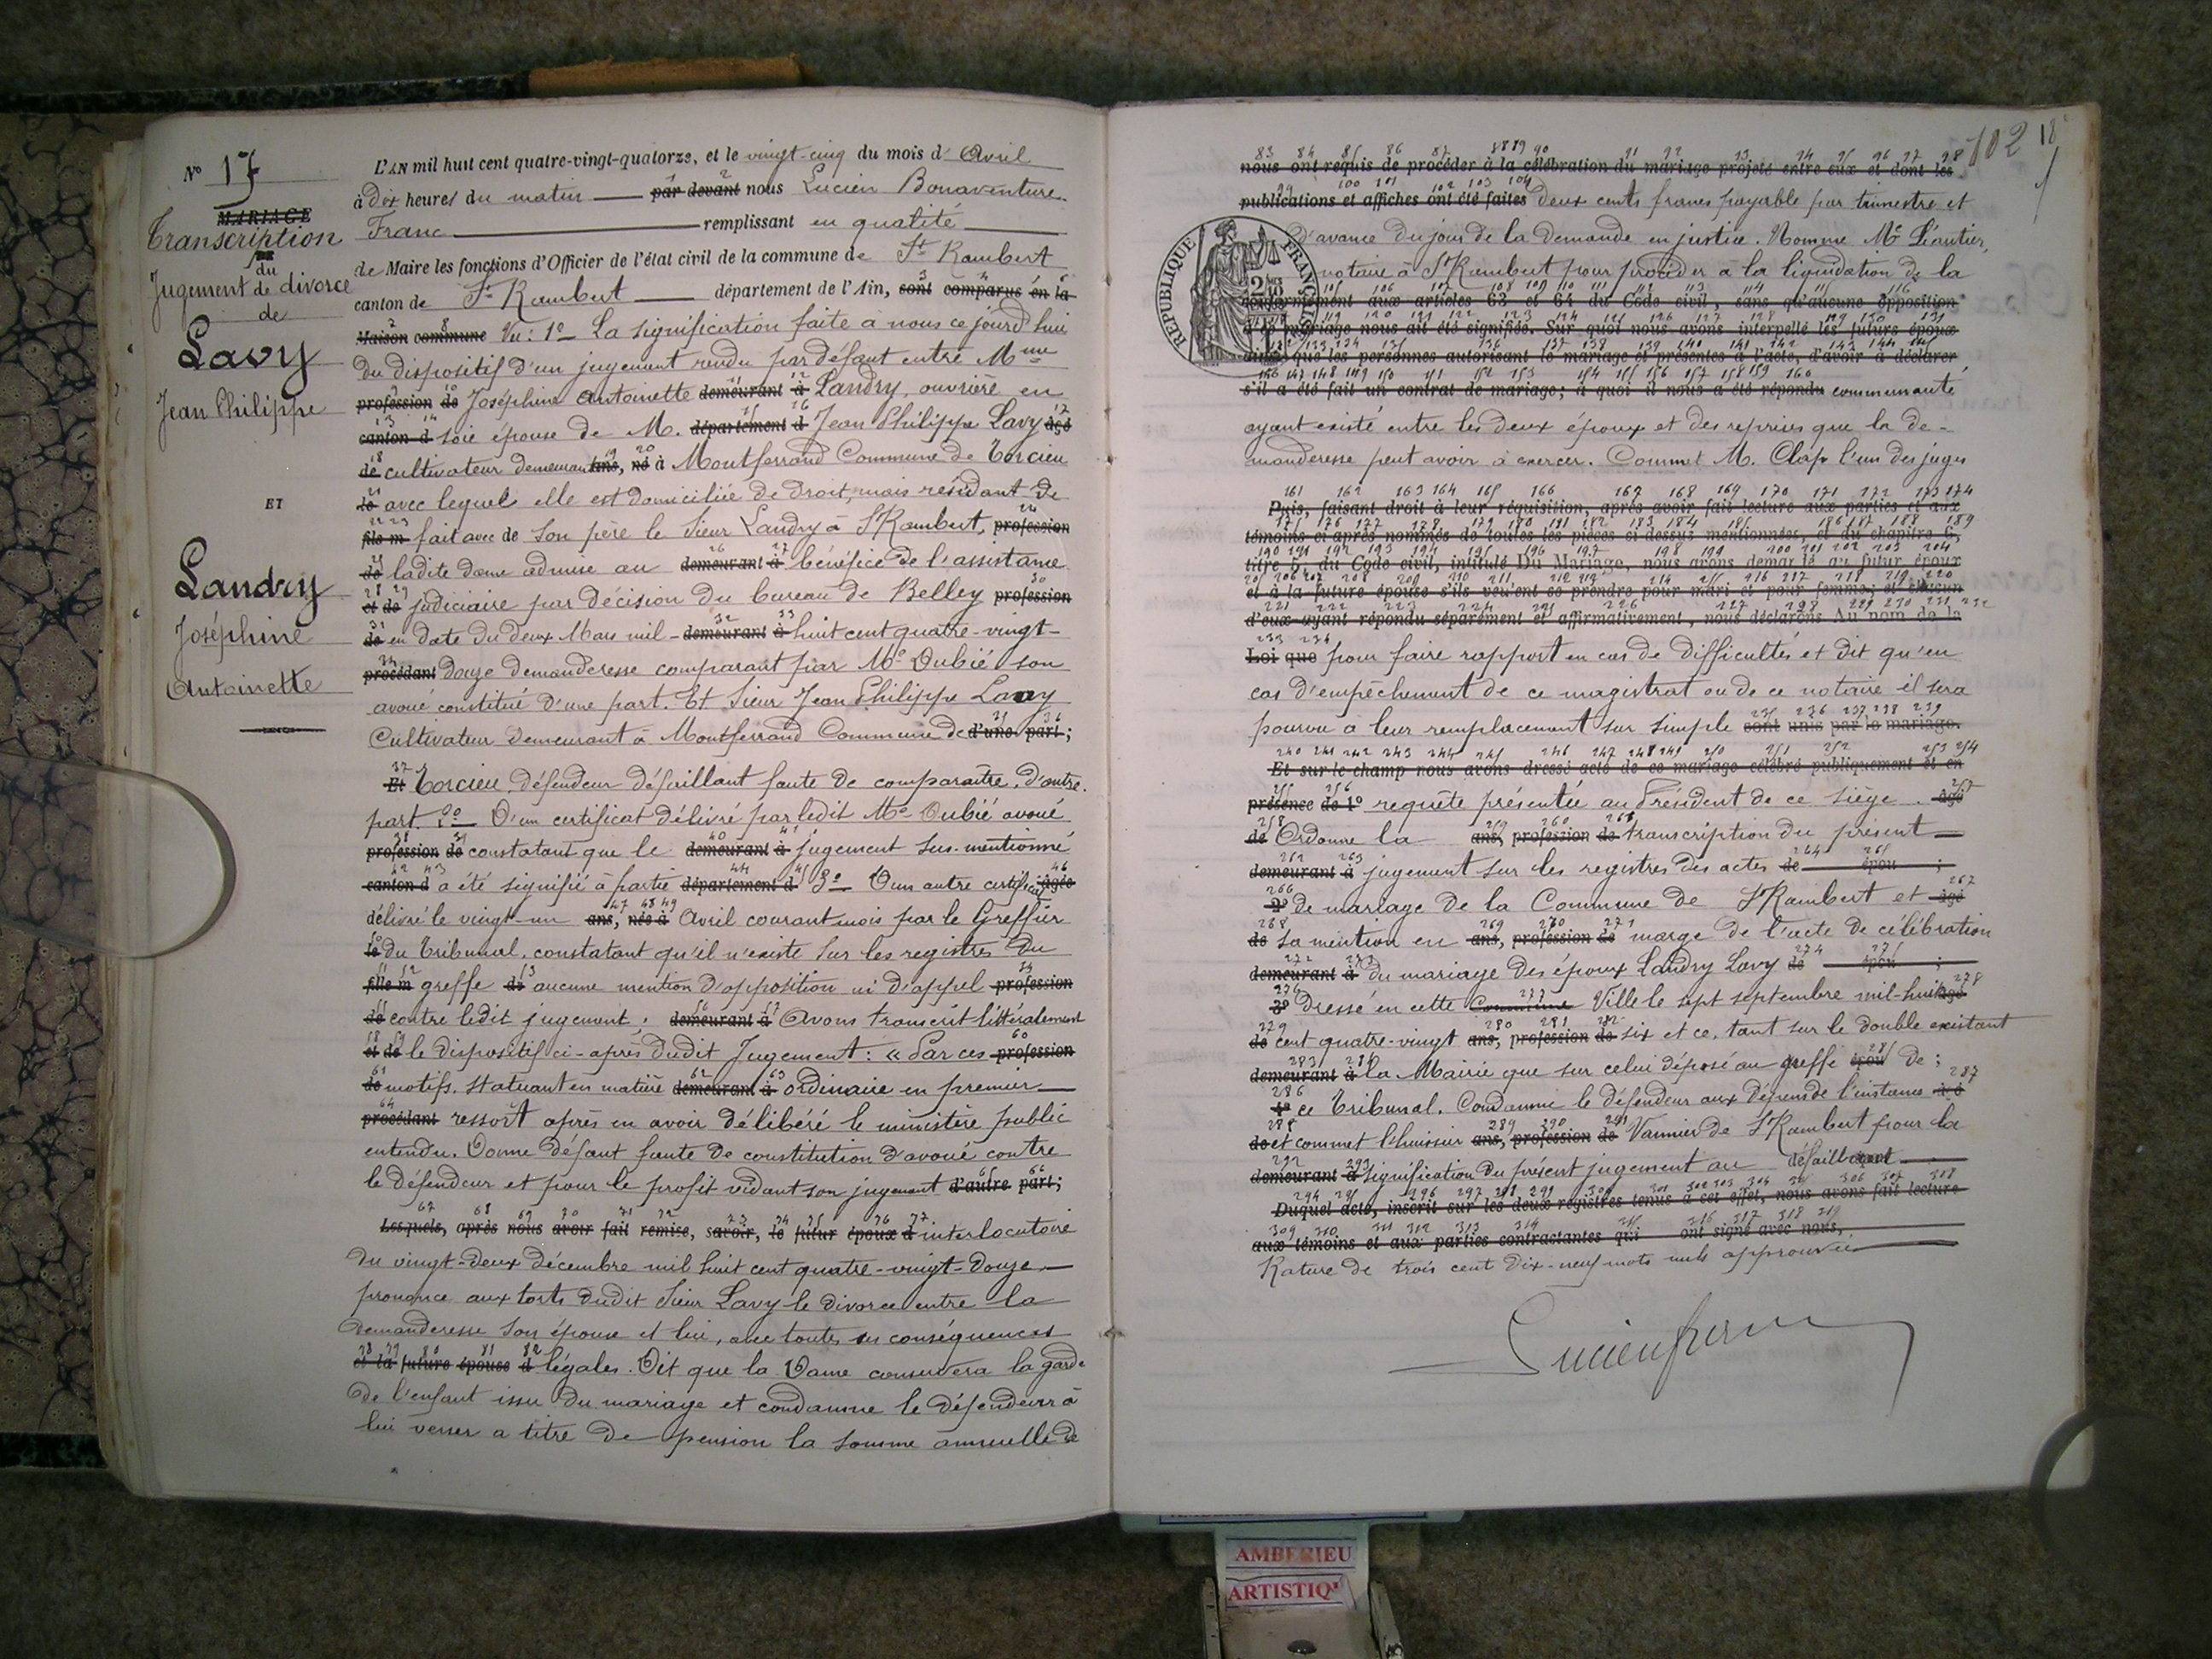 N° 17
MARIAGE
Transcription
DE
du
Jugement de divorce
de
Lavy
Jean Philippe
ET
Landry
Joséphine
Antoinette
L'AN mil huit cent quatre-vingt-quatorze, et le vingt-cinq du mois d'Avril
à dix heures du matin par devant nous Lucien Bonaventure
Franc remplissant en qualité
de Maire les fonctions d'Officier de l'état civil de la commune de St Rambert
canton de St Rambert département de l'Ain, sont comparus en la
Maison commune Vu : 1° La signification faite à nous ce jourd'hui
du dispositif d'un jugement rendu par défaut entre Mme
profession de Joséphine Antoinette demeurant à Landry, ouvrière en
canton d soie épouse de M. département d Jean Philippe Lavy âgé
de cultivateur demeurant ans, né à Montferrand Commune de Torcieu
le avec lequel elle est domiciliée de droit, mais résidant de
fils m fait avec de son père le sieur Landry à St Rambert, profession
de ladite dame admise au demeurant à bénéfice de l'assistance
et de judiciaire par décision du bureau de Belley profession
de en date du deux Mars mil- demeurant à huit cent quatre-vingt-
procédant douze demanderesse comparant par Me Dubié son
avoué constitué d'une part. Et sieur Jean Philippe Lavy
Cultivateur demeurant à Montferrand Commune de d'une part;
Et Torcieu, défendeur défaillant faute de comparaître, d'autre.
part. 2° D'un certificat délivré par ledit Me Dubié avoué
profession de constatant que le demeurant à jugement sus-mentionné
canton d a été signifié à partie département d 3° D'un autre certificat âgée
délivré le vingt-un ans, née à Avril courant mois par le Greffier
le du Tribunal, constatant qu'il n'existe sur les registres du
fille m greffe de aucune mention d'opposition ni d'appel profession
de contre ledit jugement; demeurant à Avons transcrit littéralement
et de le dispositif ci-après dudit Jugement : « Par ces profession
de motifs. Statuant en matière demeurant à ordinaire en premier
procédant ressort après en avoir délibéré le ministère public
entendu. Donne défaut faute de constitution d'avoué contre
le défendeur et pour le profit vidant son jugement d'autre part;
Lesquels, après nous avoir fait remise, savoir, le futur époux d interlocutoire
du vingt-deux décembre mil huit cent quatre-vingt-douze
prononce aux torts dudit sieur Lavy le divorce entre la
demanderesse son épouse et lui, avec toutes ses conséquences
et la future épouse d légales. Dit que la Dame conservera la garde
de l'enfant issu du mariage et condamne le défendeur à
lui verser a titre de pension la somme annuelle de
102 18
nous ont requis de procéder à la célébration du mariage projeté entre eux et dont les
publications et affiches ont été faites deux cents francs payable par trimestre et
d'avance du jour de la demande en justice. Nomme Me Léautier,
notaire à St Rambert pour procéder à la liquidation de la
RÉPUBLIQUE FRANÇAISE
conformément aux articles 63 et 64 du Code civil, sans qu'aucune opposition
à ce mariage nous ait été signifiée. Sur quoi nous avons interpellé les futurs époux
ainsi que les personnes autorisant le mariage et présentes à l'acte, d'avoir à déclarer
s'il a été fait un contrat de mariage; à quoi il nous a été répondu communauté
ayant existé entre les deux époux et des reprises que la de-
manderesse peut avoir à exercer. Commet M. Clap l'un des juges
Puis, faisant droit à leur réquisition, après avoir fait lecture aux parties et aux
témoins ci après nommés de toutes les pièces ci dessus mentionnées, et du chapitre 6,
titre 5, du Code civil, intitulé Du Mariage, nous avons demandé au futur époux
et à la future épouse s'ils veulent se prendre pour mari et pour femme; et chacun
d'eux ayant répondu séparément et affirmativement, nous déclarons Au nom de la
Loi que pour faire rapport en cas de difficultés et dit qu'en
cas d'empêchement de ce magistrat ou de ce notaire il sera
pourvu à leur remplacement sur simple sont unis par le mariage.
Et sur le champ nous avons dressé acte de ce mariage célébré publiquement et en
présence de 1° requête présentée au Président de ce siège. âgé
de Ordonne la ans, profession de transcription du présent
demeurant à jugement sur les registres des actes de épou ;
2° de mariage de la Commune de St Rambert et âgé
de sa mention en ans, profession de marge de l'acte de célébration
demeurant à du mariage des époux Landry Lavy de épou ;
3° dressé en cette Commune Ville le sept septembre mil-huit âgé
de cent quatre-vingt ans, profession de six et ce, tant sur le double existant
demeurant à la Mairie que sur celui déposé au greffe épou de ;
4° ce Tribunal. Condamne le défendeur aux dépens de l'instance âgé
de et commet l'huissier ans, profession de Vannier de St Rambert pour la
demeurant à signification du présent jugement au défaillant
Duquel acte, inscrit sur les deux registres tenus à cet effet, nous avons fait lecture
aux témoins et aux parties contractantes qui ont signé avec nous,
Rature de trois cent dix-neuf mots nuls approuvée
Lucien franc
AMBERIEU
ARTISTIQ